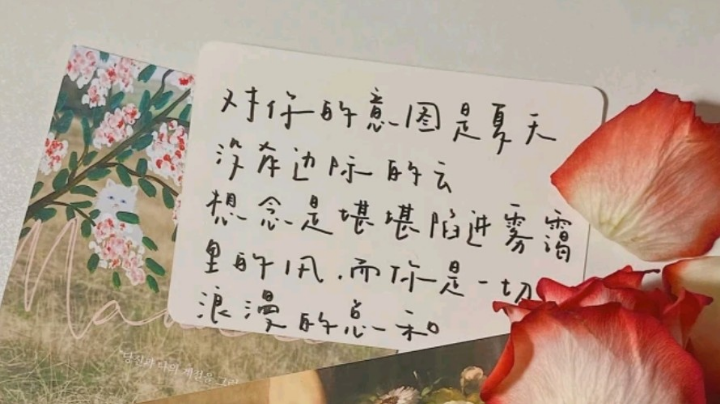 对你的意图是夏天
没有边际的云
想念是堪堪陷进雾霭
里的风.而你是一切
浪漫的总和
Na
당신과 나의 계절을 그린